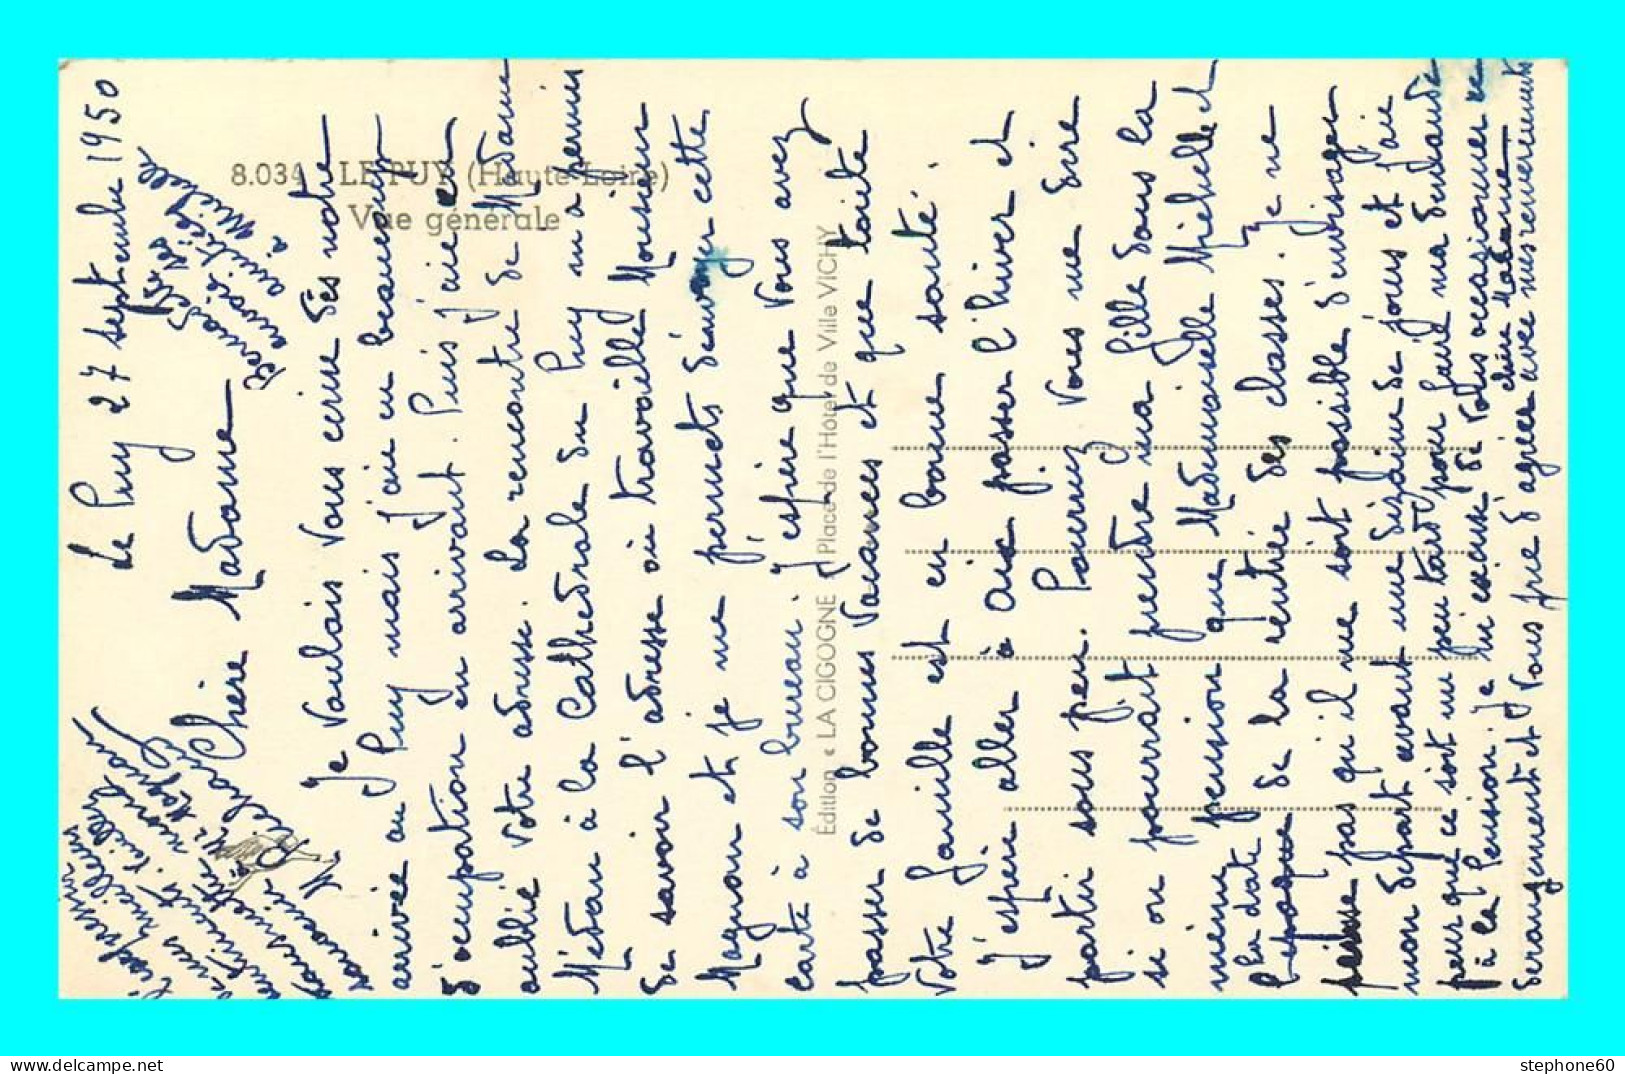 8.034 LE PUY (Haute-Loire)
Vue générale
Édition « LA CIGOGNE » Place de l'Hôtel de Ville VICHY
Le Puy 27 septembre 1950
Chère Madame
Je Voulais Vous écrire dès notre
arrivée au Puy mais j'aie eu beaucoup
d'occupation en arrivant. Puis j'aie
oublié Votre adresse. La rencontre de Madame
à la Cathédrale du Puy m'a permis
de savoir l'adresse où travaille Monsieur
Magnan et je me permets d'envoyer cette
carte à son bureau. J'espère que Vous avez
passer de bonnes Vacances et que toute
Votre famille est en bonne santé.
J'espère aller à Aix passer l'hiver et
partir sous peu. Pourrez Vous me dire
si on pourrait prendre ma fille dans la
même pension que Mademoiselle Michelle et
la date
l'époque de la rentrée des classes. Je ne
pense pas qu'il me soit possible d'envisager
mon départ avant une dizaine de jours et j'aie
peur que ce soit un peu tard pour faire ma demande
à la Pension. Je m'excuse de Vous occasionner ce
chère Madame
dérangement et Vous prie d'agréer avec mes remerciements
l'expression
de mes meilleurs
sentiments.
transmettre mon
souvenir à Mr Magnan
M. Richard
Bernadette
envoie ses
amitiés
à Michelle
stephone60